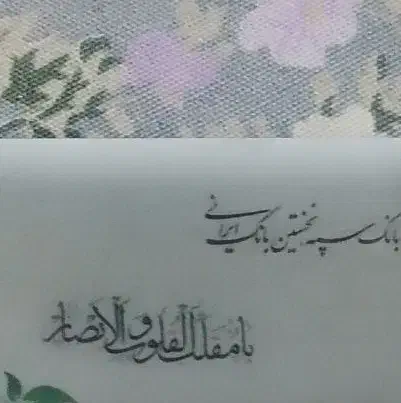 بانک سپه نخستین بانک ایرانی
یا مقلب القلوب و الابصار